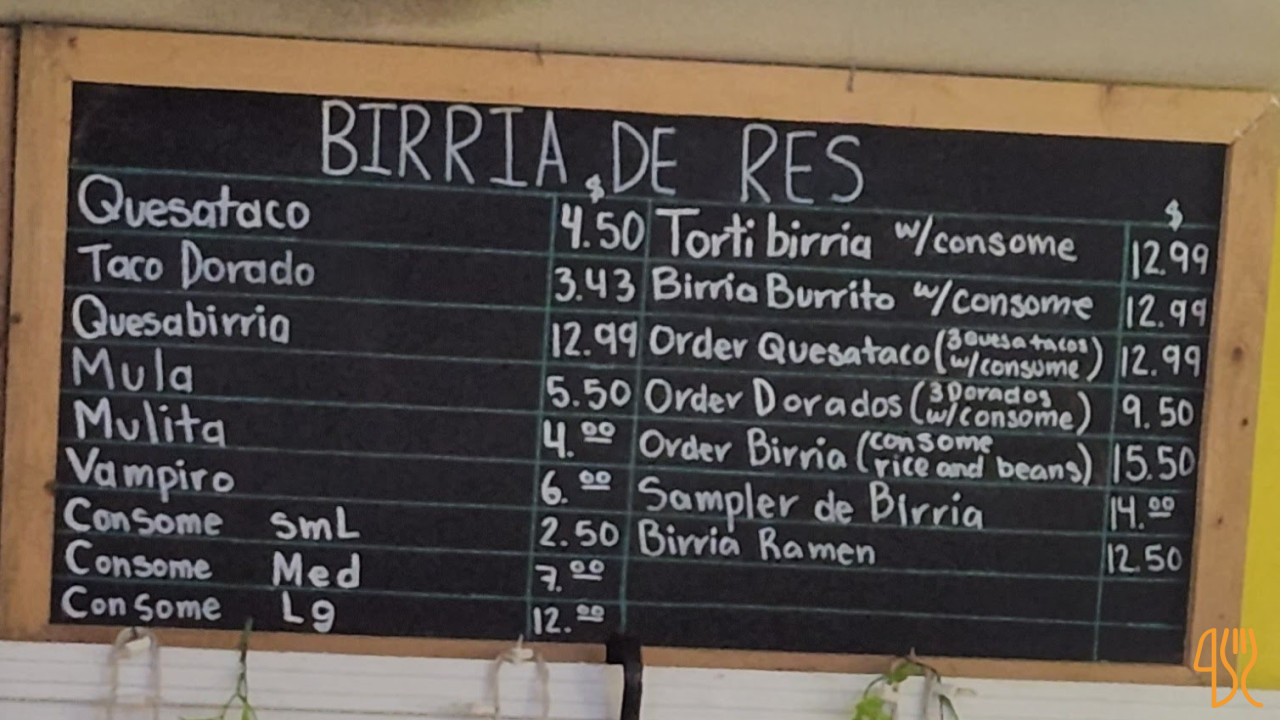 BIRRIA DE RES
$
Quesataco 4.50
Taco Dorado 3.43
Quesabirria 12.99
Mula 5.50
Mulita 4.00
Vampiro 6.00
Consome smL 2.50
Consome Med 7.00
Consome Lg 12.00
$
Torti birria w/consome 12.99
Birria Burrito w/consome 12.99
Order Quesataco (3 Quesatacos w/consume) 12.99
Order Dorados (3 Dorados w/consome) 9.50
Order Birria (consome rice and beans) 15.50
Sampler de Birria 14.00
Birria Ramen 12.50